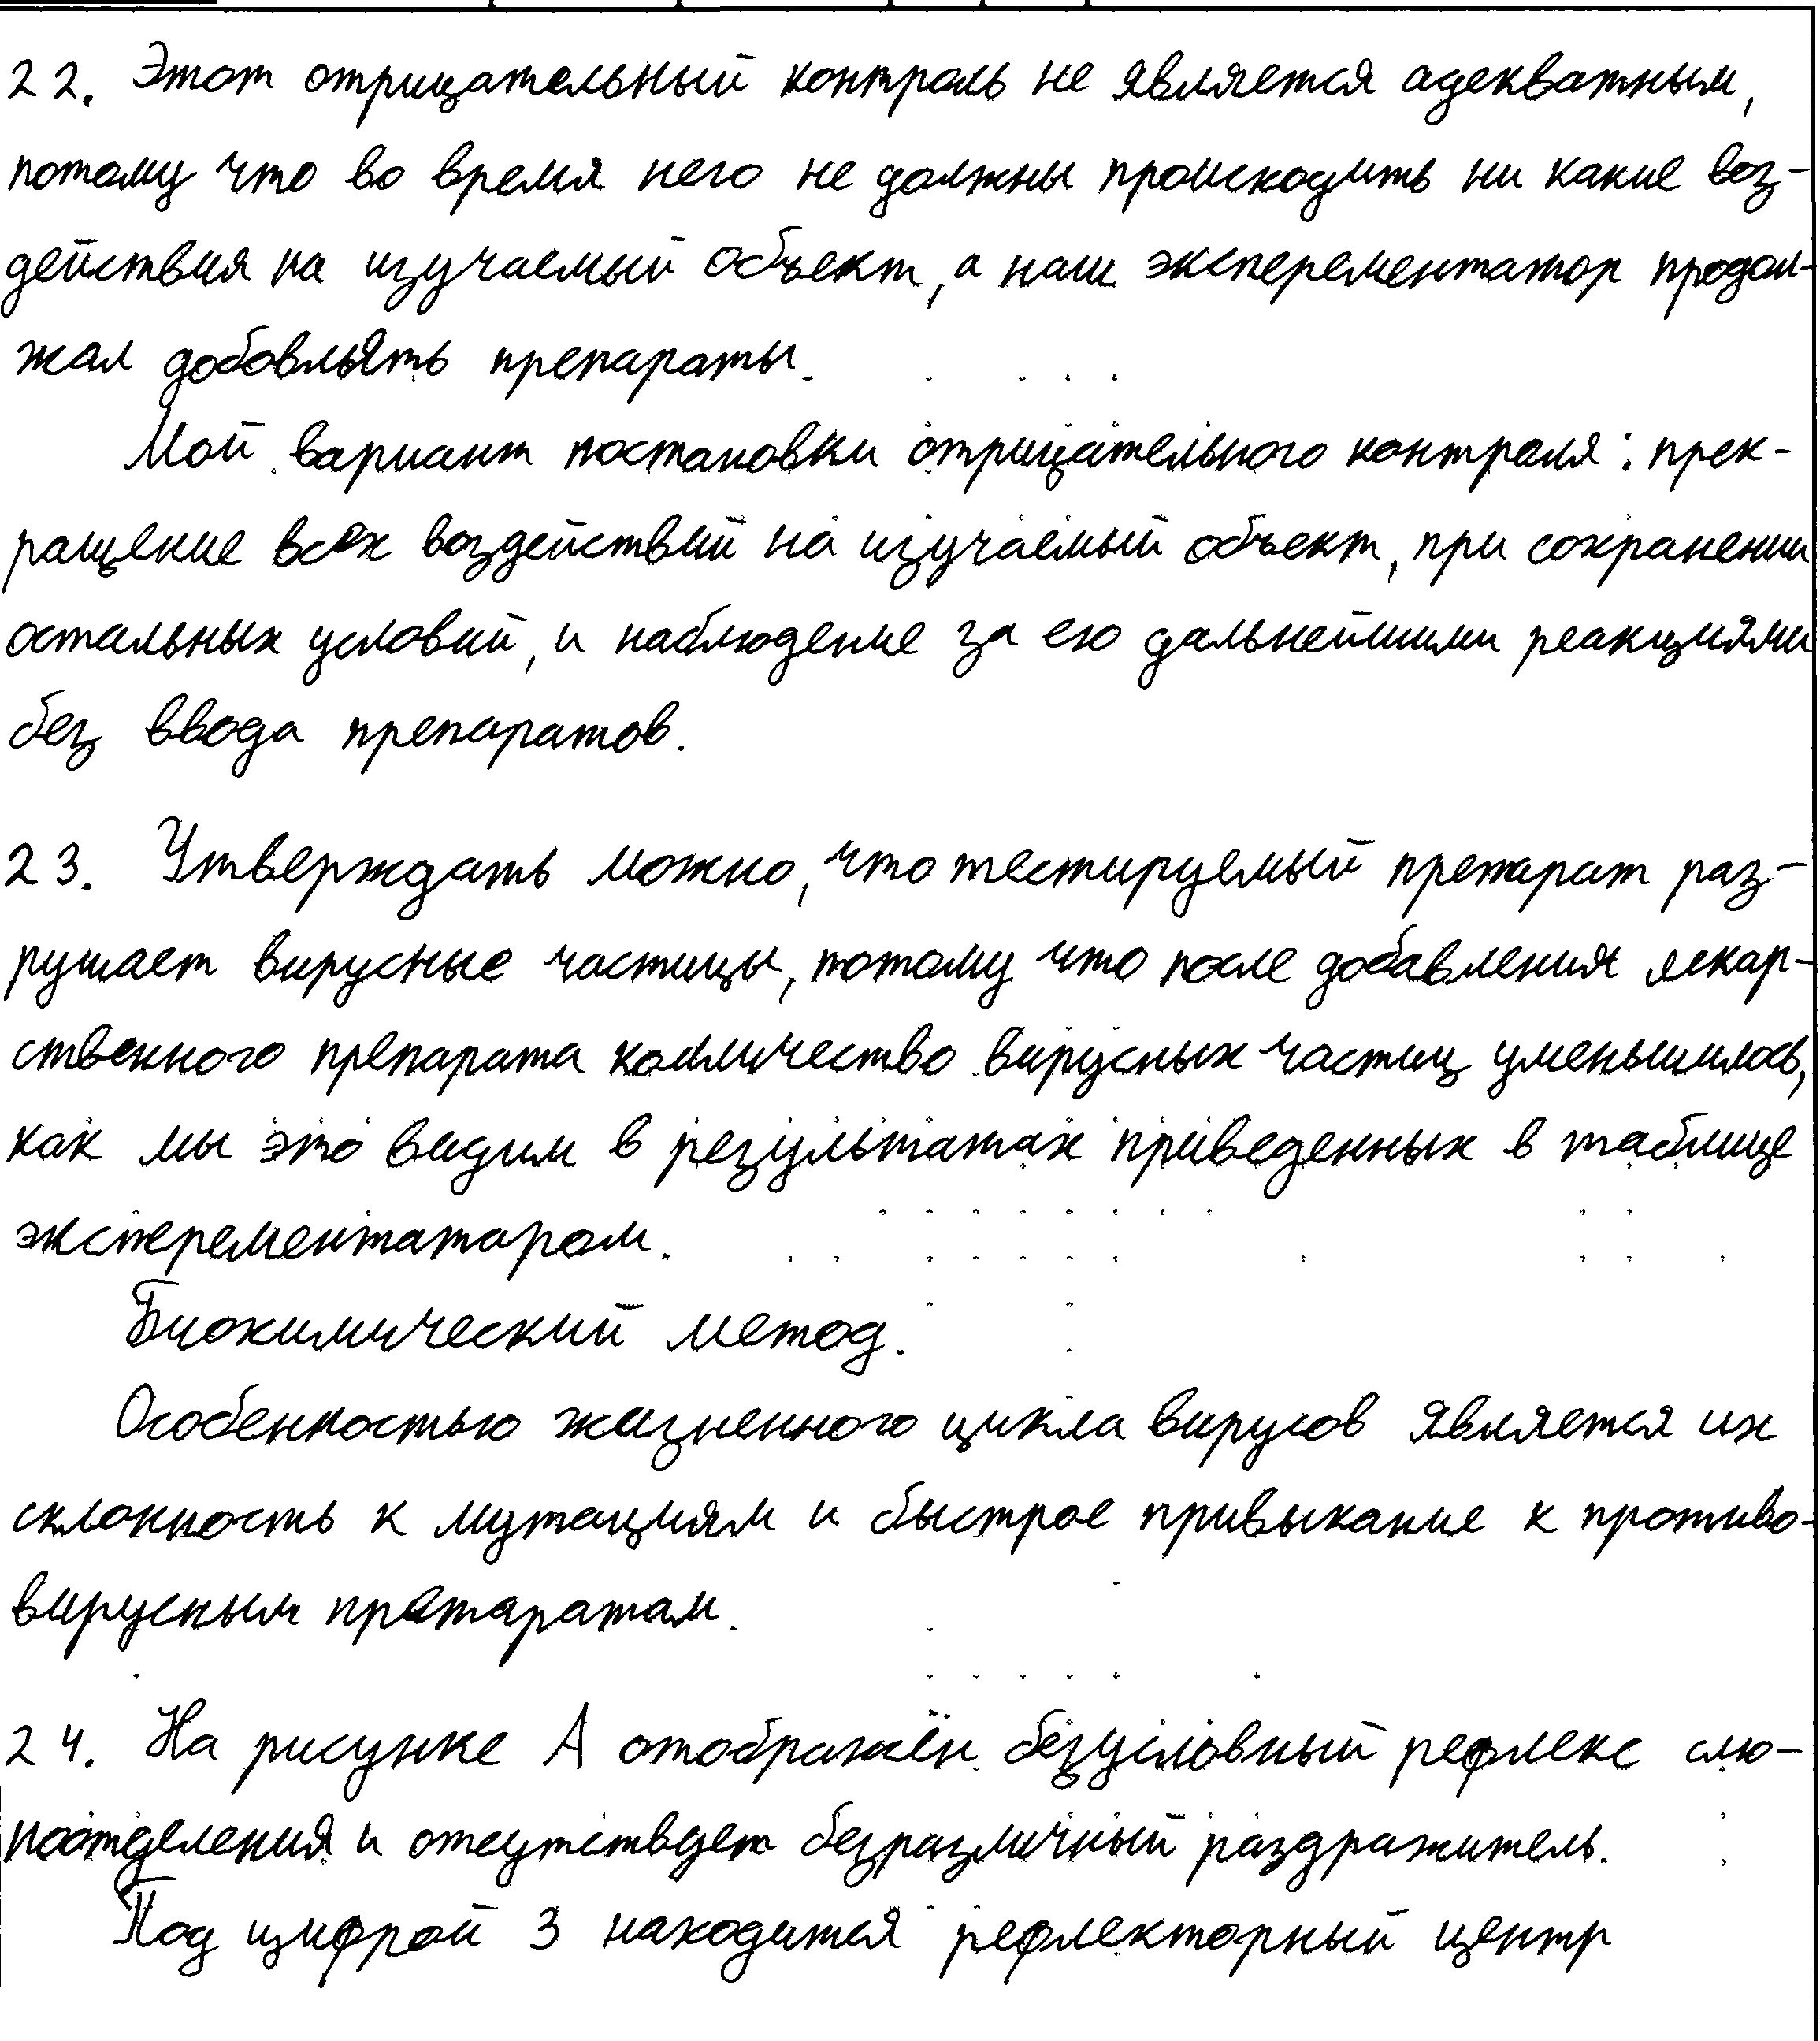 22. Этот отрицательный контроль не является адекватным,
потому что во время него не должны происходить ни какие воз-
действия на изучаемый объект, а наш эксперементатор продол-
жал добовлять препараты.
Мой вариант постановки отрицательного контроля: прек-
ращение всех воздействий на изучаемый объект, при сохранении
остальных условий, и наблюдение за его дальнейшими реакциями
без ввода препаратов.
23. Утверждать можно, что тестируемый препарат раз-
рушает вирусные частицы, потому что после добавления лекар-
ственного препарата количество вирусных частиц уменьшилось,
как мы это видим в результатах приведенных в таблице
эксперементатором.
Биохимический метод.
Особенностью жизненного цикла вирусов является их
склонность к мутациям и быстрое привыкание к противо-
вирусным препаратам.
24. На рисунке А отображён безусловный рефлекс слю-
ноотделения и отсутствует безразличный раздражитель.
Под цифрой 3 находится рефлекторный центр